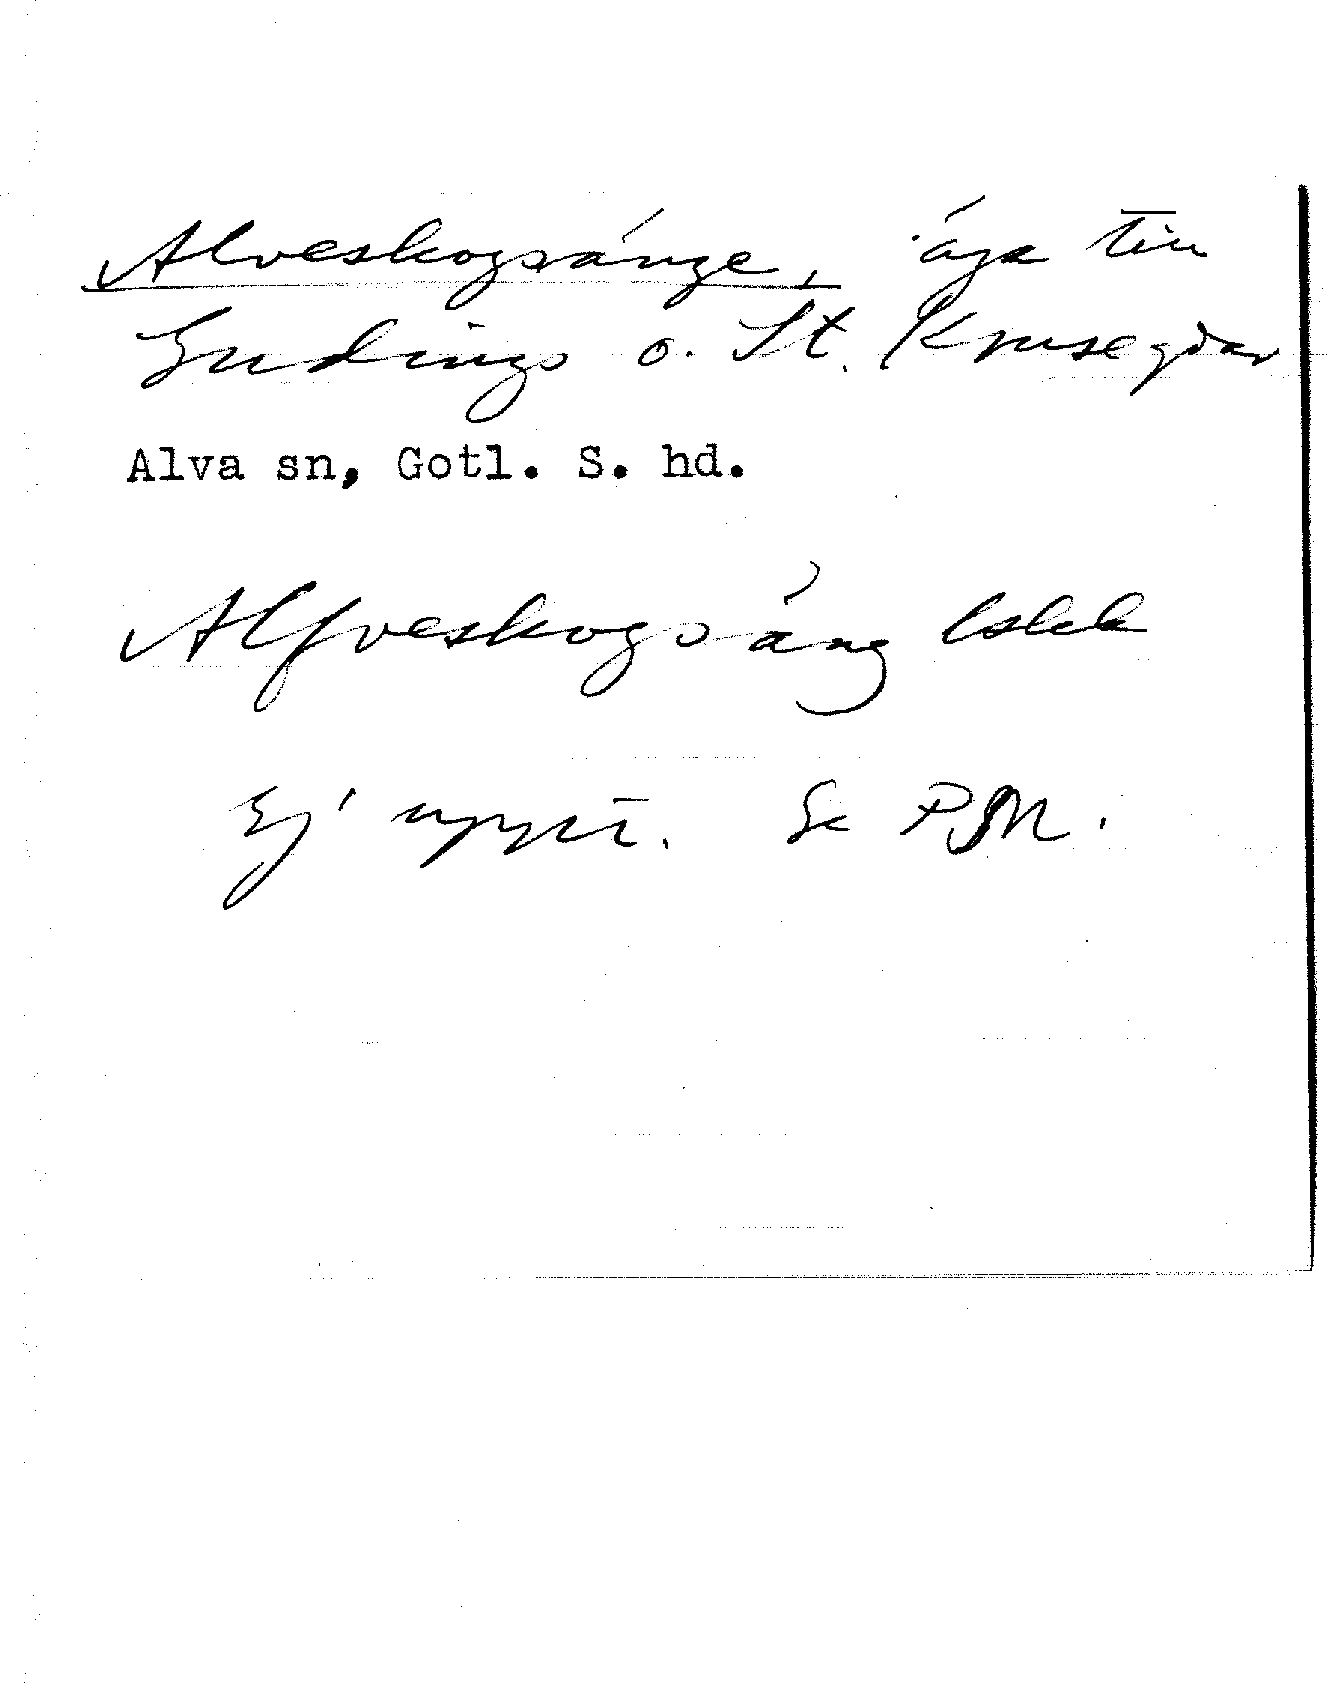 Alveskogsänge, äga till
Gudings o. St. Krusegdar
Alva sn, Gotl. S. hd.
Alfveskogsäng lskk
Ej uppt. Se PM.